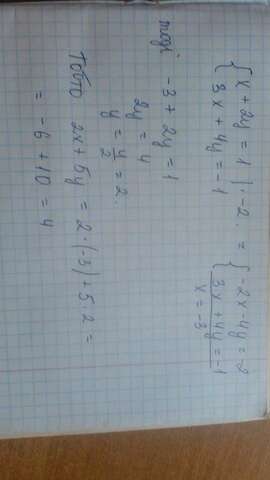 { x + 2y = 1 | · -2. = { -2x - 4y = -2
{ 3x + 4y = -1 { 3x + 4y = -1
x = -3
тоді -3 + 2y = 1
2y = 4
y = 4/2 = 2.
Тобто 2x + 5y = 2·(-3) + 5·2 =
= -6 + 10 = 4